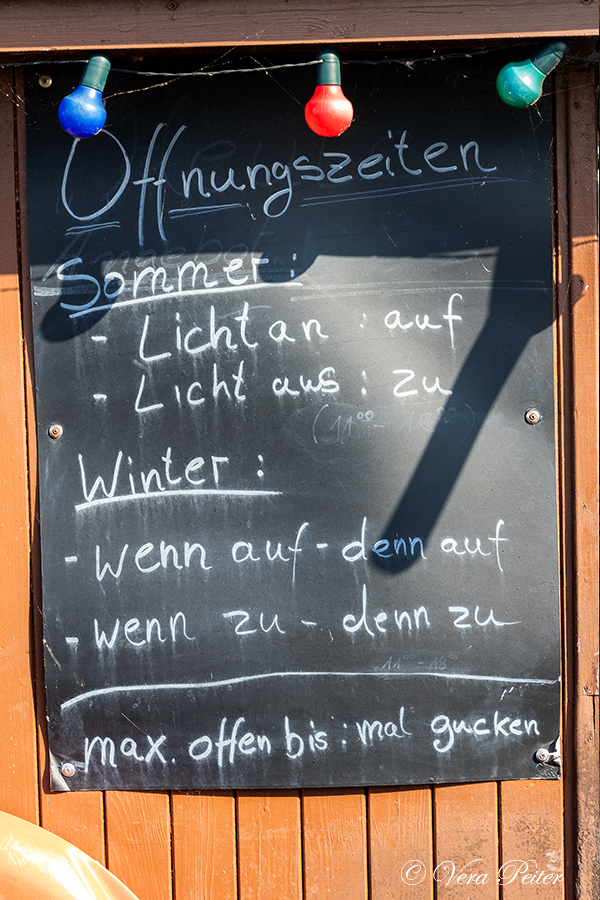 Öffnungszeiten
Sommer:
- Licht an : auf
- Licht aus : zu
Winter :
- wenn auf - denn auf
- wenn zu - denn zu
max. offen bis : mal gucken
© Vera Peiter